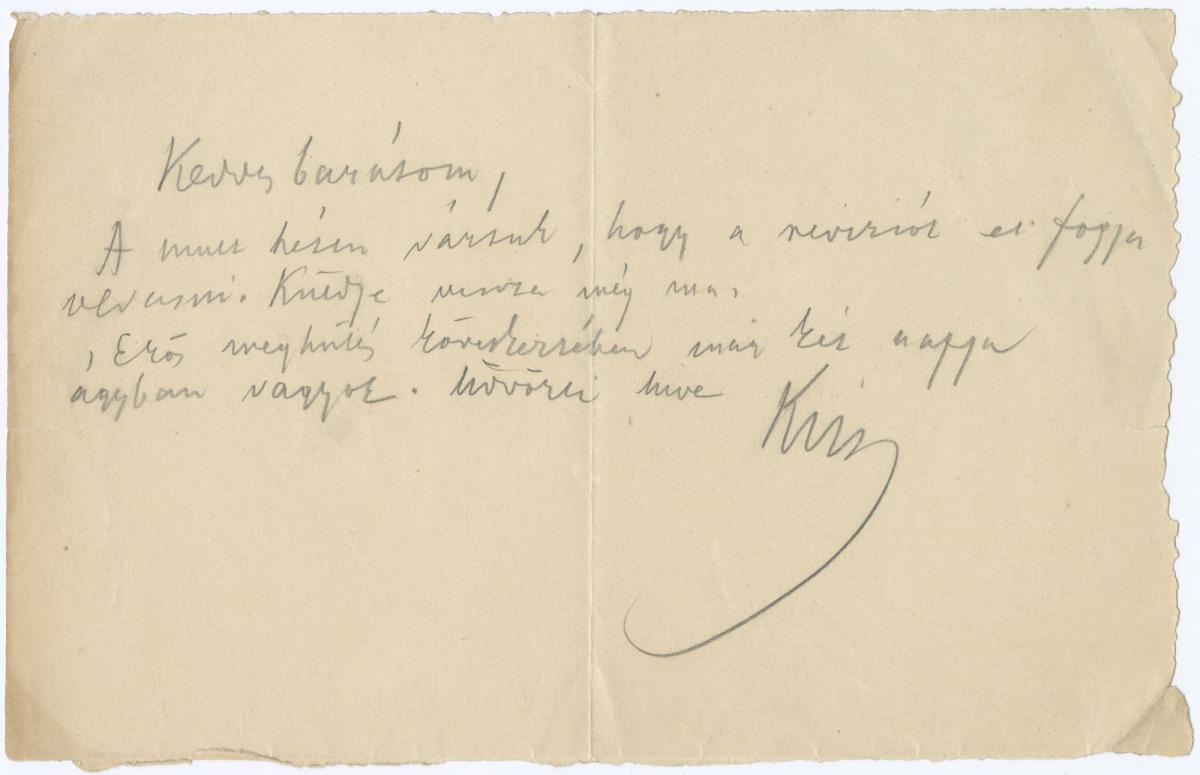 Kedves barátom,
A mult héten vártuk, hogy a revíziót el fogja
olvasni. Küldje vissza még ma.
Erős meghűlés következtében már két napja
ágyban vagyok. Üdvözli hive
Kiss